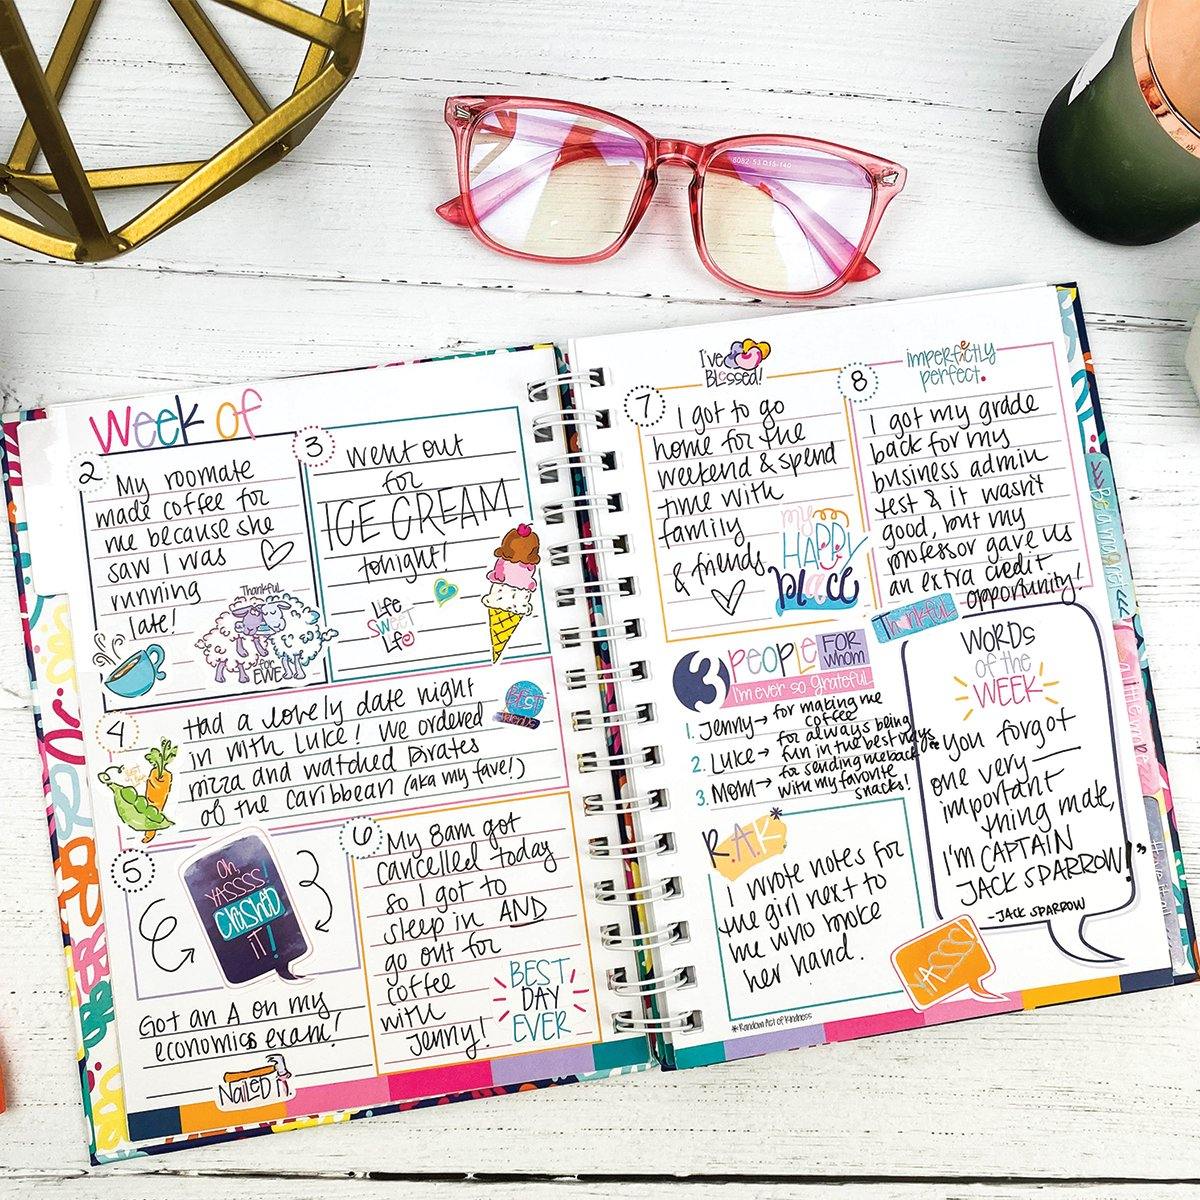 Week of
2
My roomate
made coffee for
me because she
saw I was
running
late!
Thankful
for
EWE
3
Went out
for
ICE CREAM
tonight!
Life
Sweet
Life!
4
Had a lovely date night
in with Luke! We ordered
pizza and watched Pirates
of the Caribbean (aka my fave!)
BEST
5
Oh,
YASSSS!
CRUSHED
IT!
Got an A on my
economics exam!
NAILED IT.
6
My 8am got
cancelled today
so I got to
sleep in AND
go out for
coffee
with
Jenny!
BEST
DAY
EVER
6082 53 15-140
I've
BLessed!
7
I got to go
home for the
weekend & spend
time with
family
& friends
my
HAPPY
place
8
imperfectly
perfect.
I got my grade
back for my
business admin
test & it wasn't
good, but my
professor gave us
an extra credit
opportunity!
Thankful
3 PEOPLE FOR
WHOM
I'm ever so grateful
1. Jenny → for making me
coffee
2. Luke → for always being
fun in the best ways
3. Mom → for sending me back
with my favorite
snacks!
R.A.K*
I wrote notes for
the girl next to
me who broke
her hand.
*Random Act of Kindness
WORDS
of the
WEEK
"You forgot
one very
important
thing mate,
I'M CAPTAIN
JACK SPARROW!"
-JACK SPARROW
YASSSS